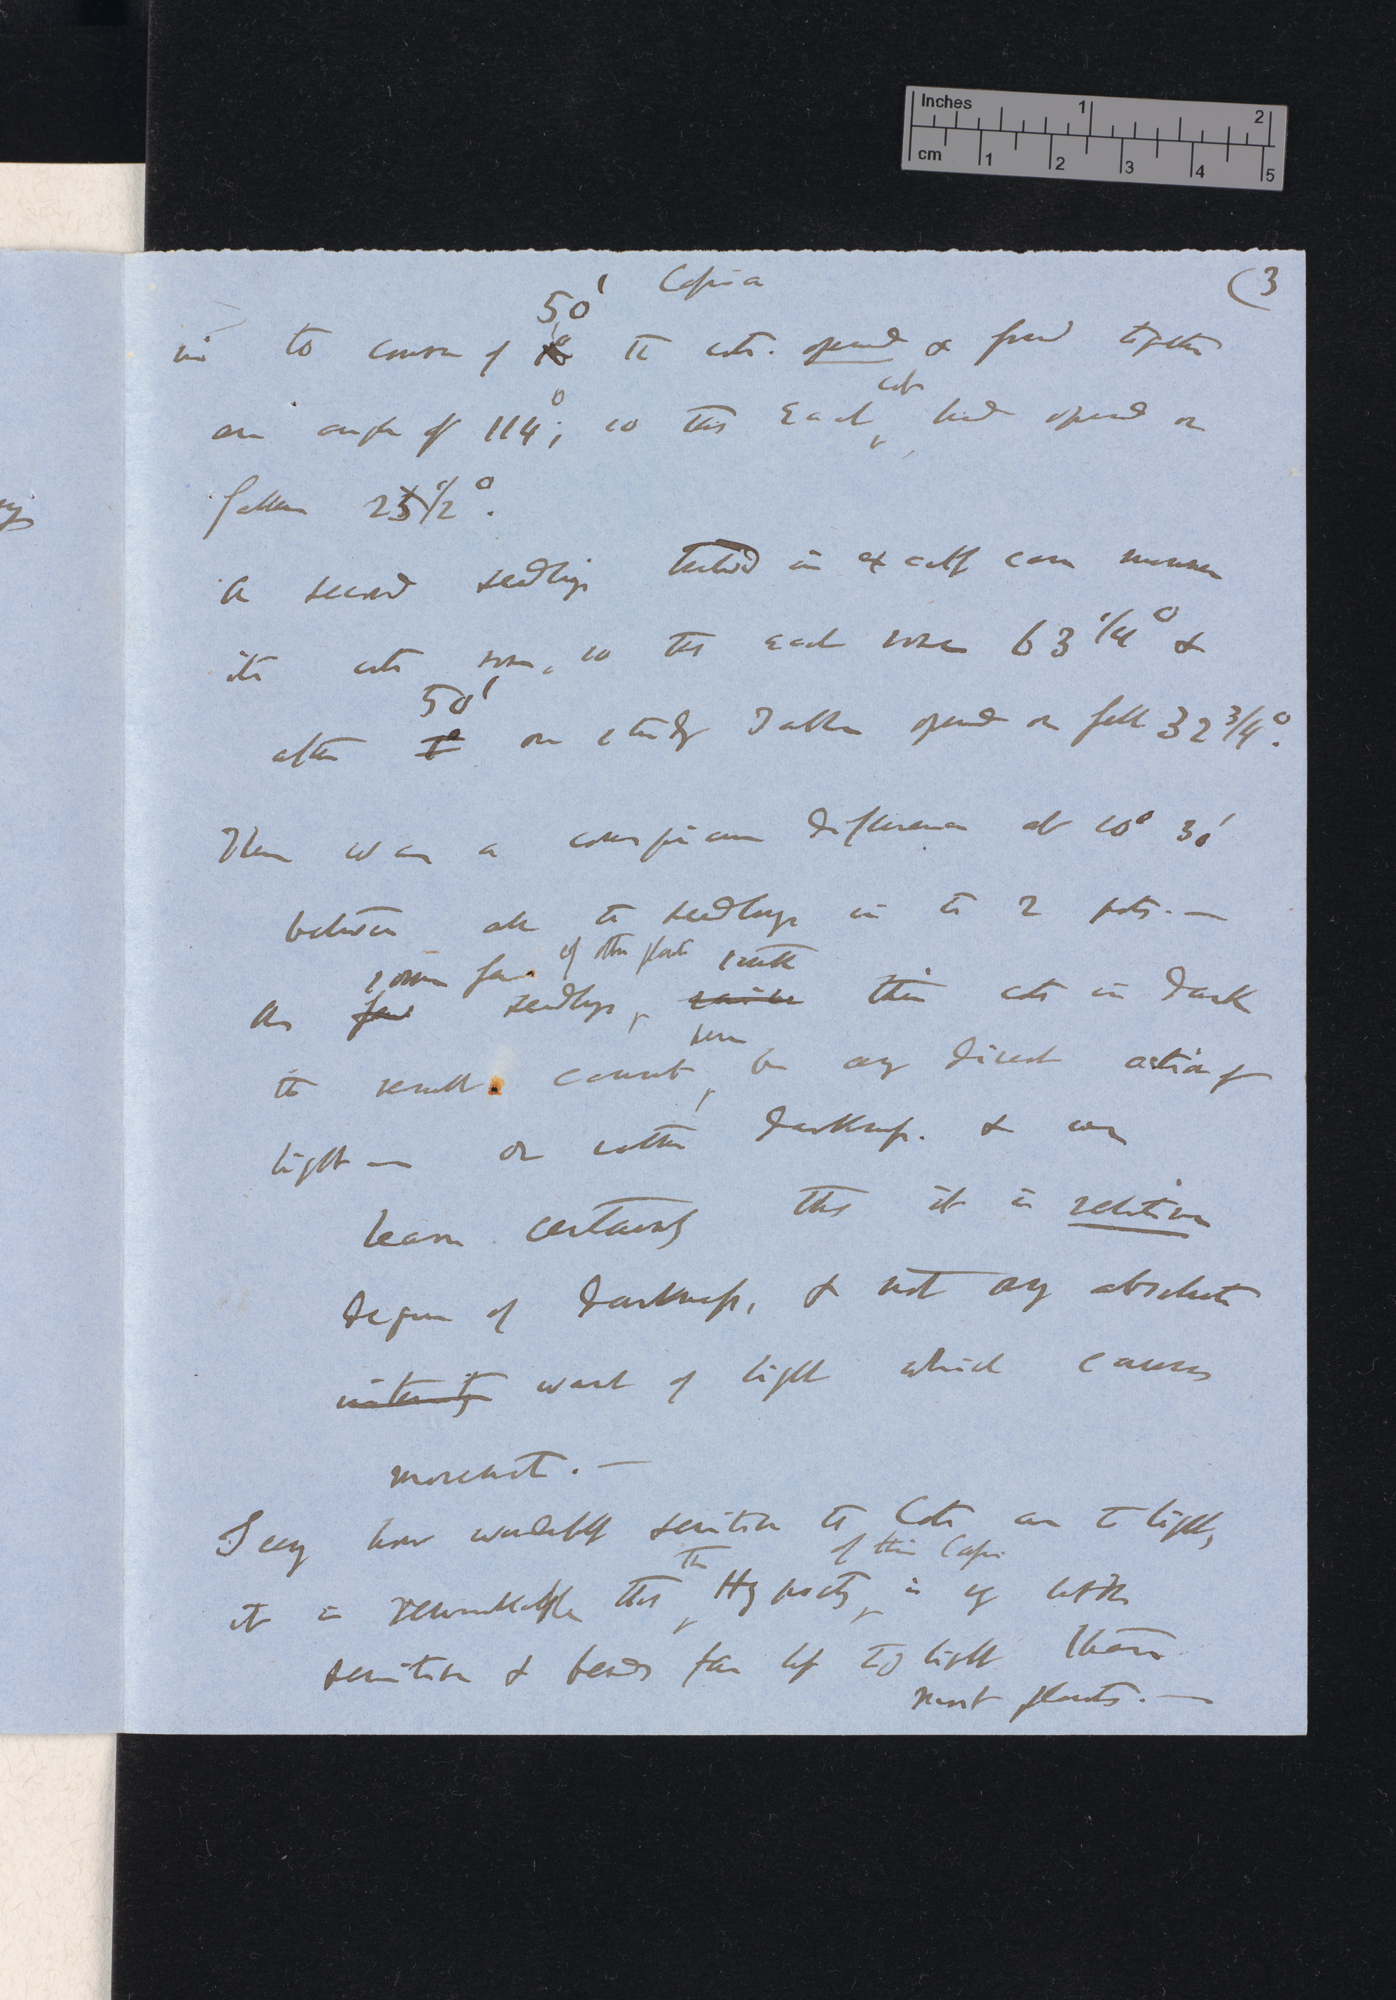 Inches 1 2
cm 1 2 3 4 5
Cassia (3
50'
in the course of the cots. opened & formed together
cot
an angle of 114°; so that each had opened or
fallen 25 1/2°.
A second seedling treated in exactly same manner
its cots rose, so that each rose 63 1/4° &
50'
after 1° on study Table opened or fell 32 3/4°.
There was a conspicuous difference at 10° 30'
between all the seedlings in the 2 pots. —
some few of other plants sank
As few seedlings, their cots in dark
seem
the result cannot be any direct action of
light — or rather darkness. & we
learn certainly that it is relative
degree of darkness, & not any absolute
intensity want of light which causes
movement. —
Seeing how wonderfully sensitive the Cots are to light,
the of this Cassia
it is remarkable that Hypocotyl is by little
sensitive & bends far less to light than
most plants. —